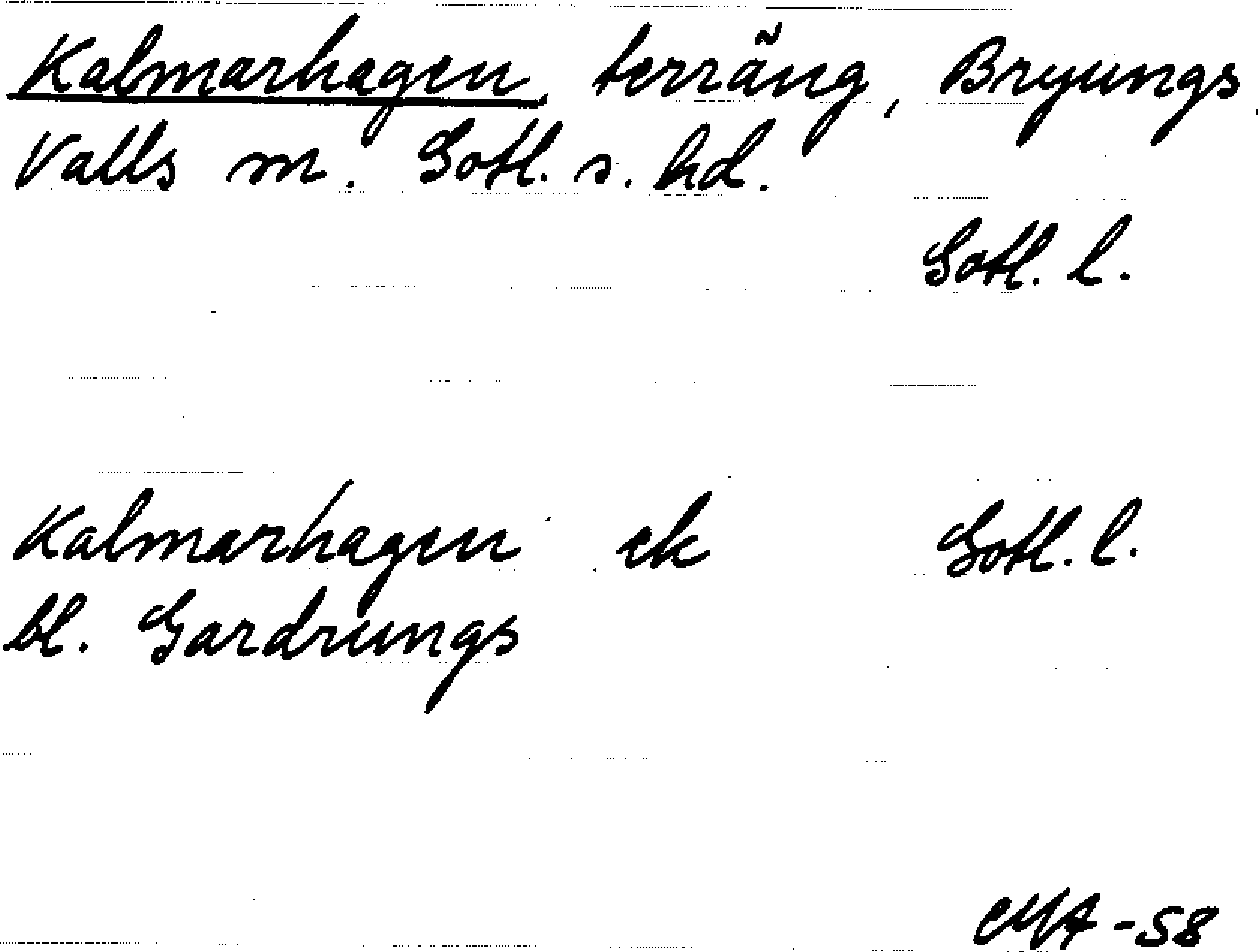 Kalmarhagen, terräng, Bryungs,
Valls sn. Gotl. s. hd.
Gotl. l.
Kalmarhagen ek Gotl. l.
bl. Gardrungs
MA -58